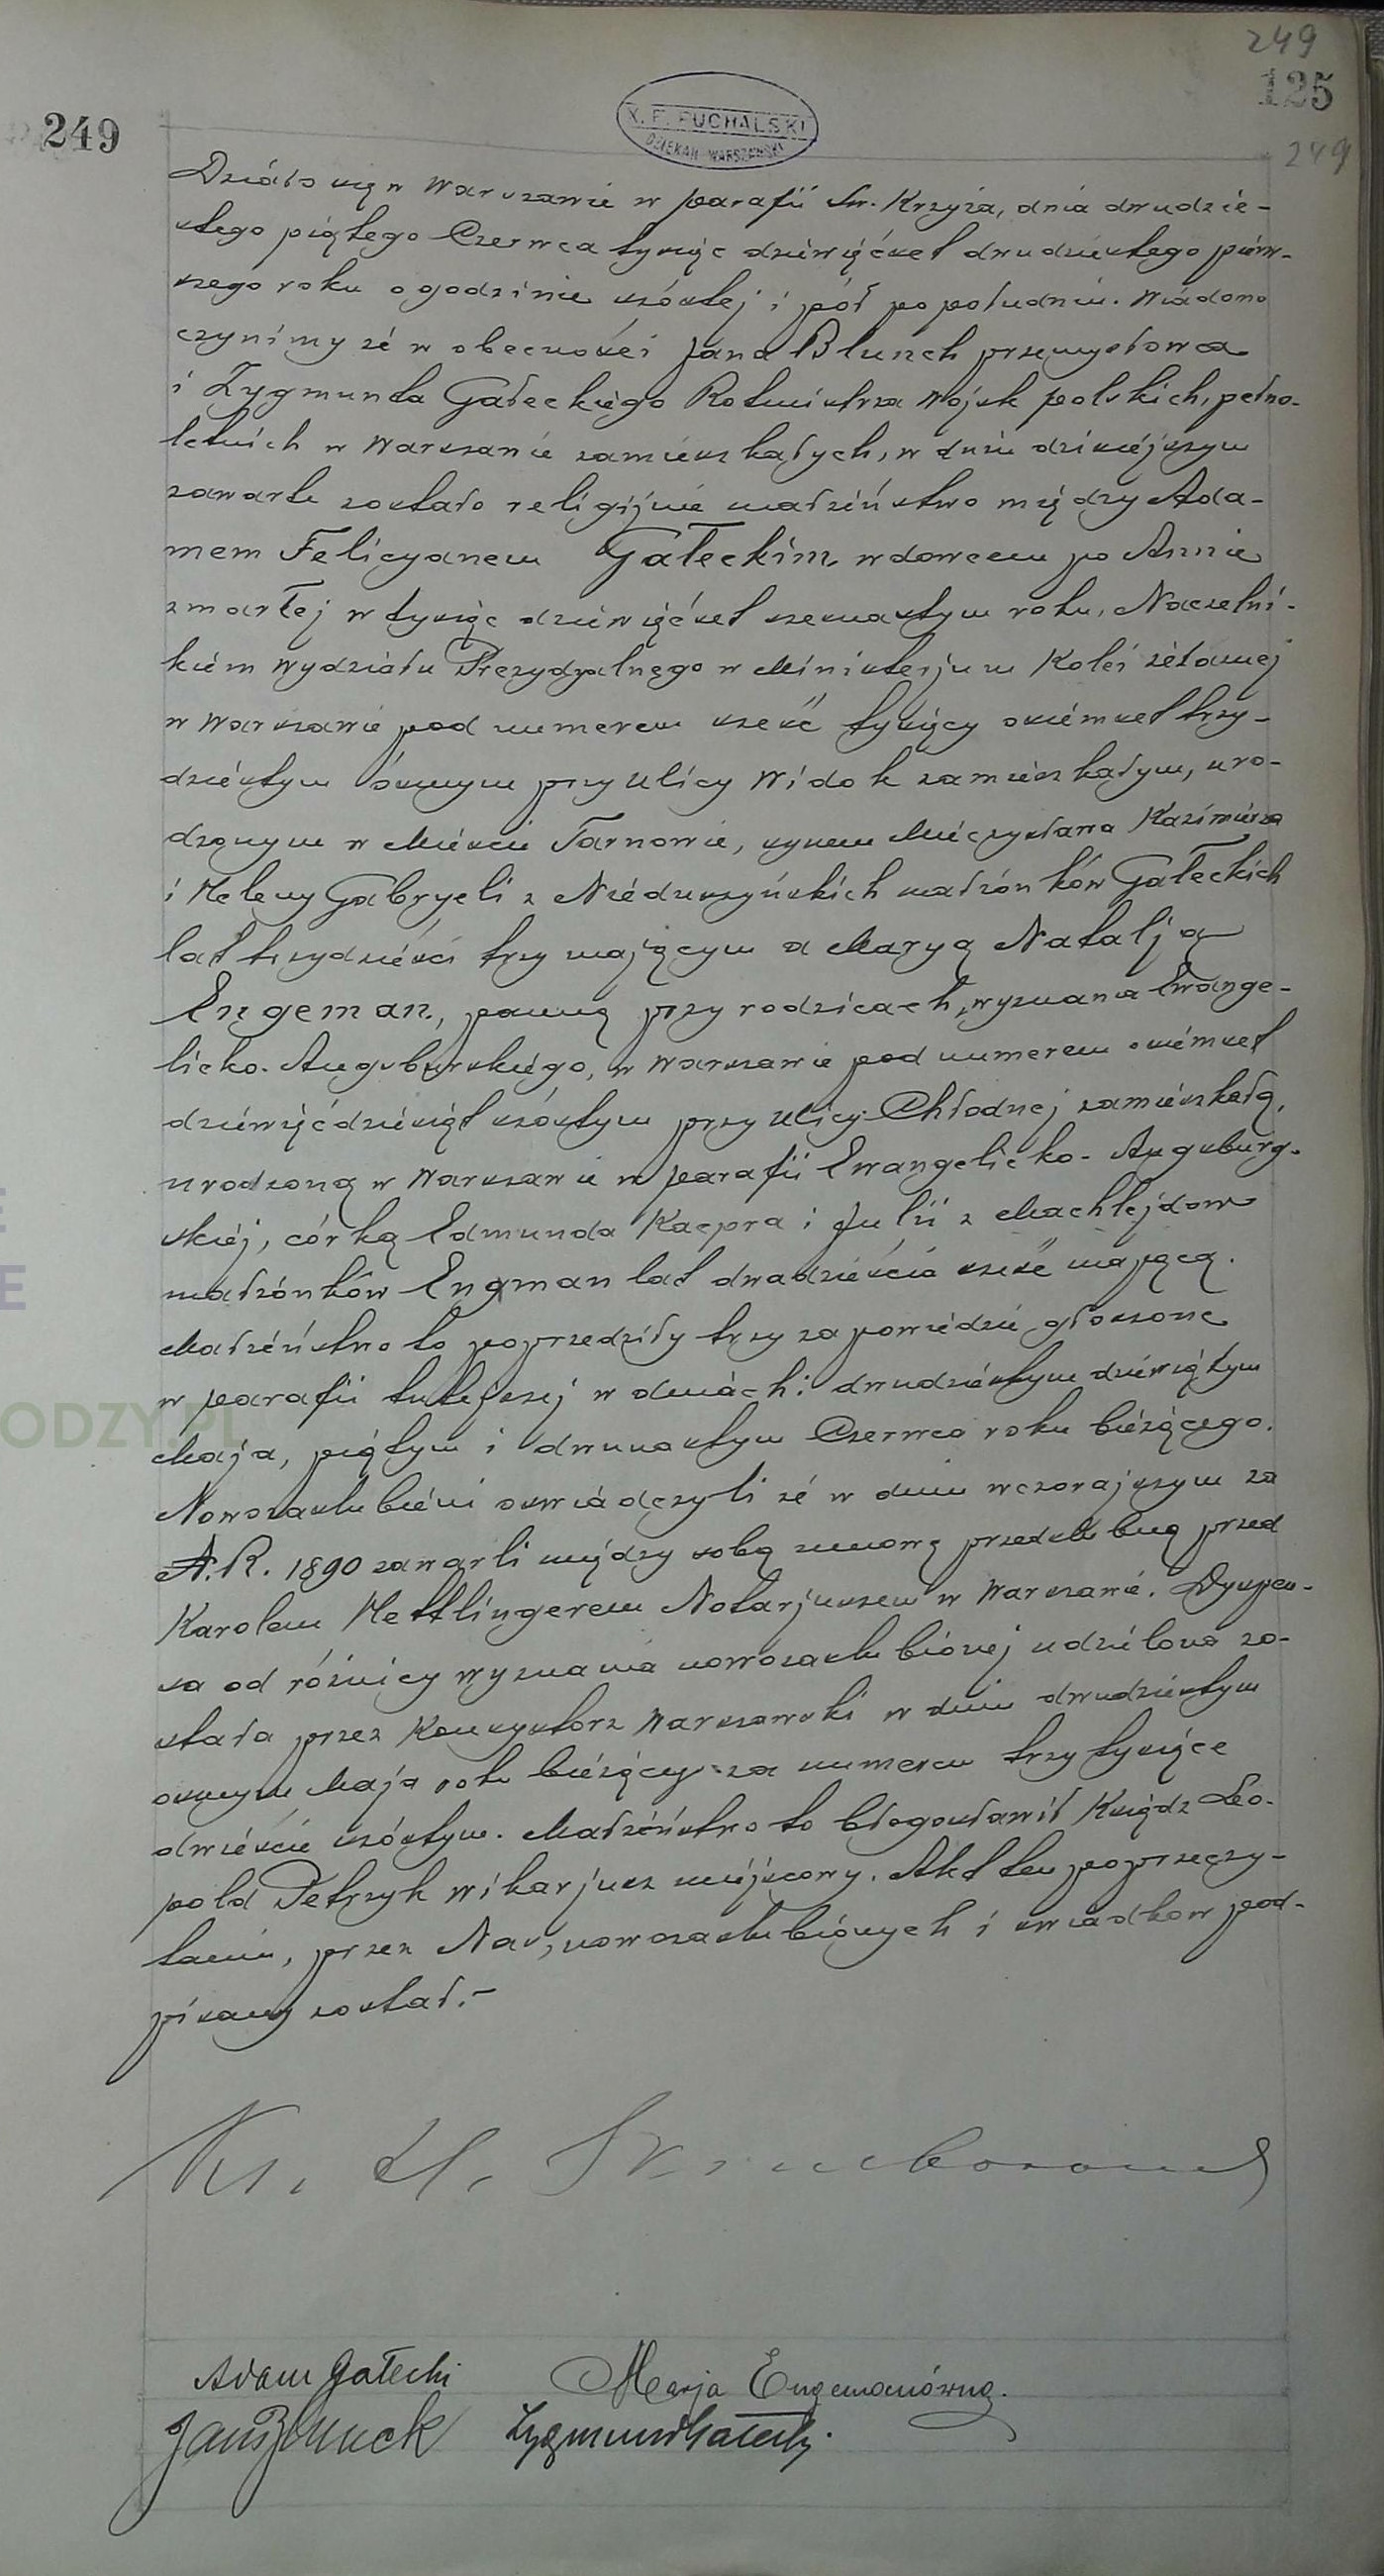 249
125
249
249
X. F. PUCHALSKI
DZIEKAN WARSZAWSKI
Działo się w Warszawie w parafii Św. Krzyża, dnia dwudzie-
stego piątego Czerwca tysiąc dziewięćset dwudziestego pierw-
szego roku o godzinie szóstej i pół po południu. Wiadomo
czynimy że w obecności Jana Blunck przemysłowca
i Zygmunta Gałeckiego Rotmistrza Wojsk polskich, pełno-
letnich w Warszawie zamieszkałych, w dniu dzisiejszym
zawarte zostało religijnie małżeństwo między Ada-
mem Felicyanem Gałeckim, wdowcem po Annie
zmarłej w tysiąc dziewięćset szesnastym roku, Naczelni-
kiem Wydziału Prezydyalnego w Ministerjum Kolei żelaznej
w Warszawie pod numerem sześć tysięcy osiemset trzy-
dziestym ósmym przy ulicy Widok zamieszkałym, uro-
dzonym w Mieście Tarnowie, synem Mieczysława Kazimierza
i Heleny Gabryeli z Nieduszyńskich małżonków Gałeckich
lat trzydzieści trzy mającym a Maryą Natalją
Engeman, panną przy rodzicach, wyznania Ewange-
licko-Augsburskiego, w Warszawie pod numerem osiemset
dziewięćdziesiąt szóstym przy ulicy Chłodnej zamieszkałą,
urodzoną w Warszawie w parafii Ewangelicko-Augsburg-
skiej, córką Edmunda Kacpra i Julii z Machlejdow
małżonków Engman lat dwadzieścia sześć mającą.
Małżeństwo to poprzedziły trzy zapowiedzie głoszone
w parafii tutejszej w dniach: dwudziestym dziewiątym
Maja, piątym i dwunastym Czerwca roku bieżącego.
Nowozaślubieni oświadczyli że w dniu wczorajszym za
A.R. 1890 zawarli między sobą umowę przedślubną przed
Karolem Hettlingerem Notarjuszem w Warszawie. Dyspen-
sa od różnicy wyznania nowozaślubionej udzielona zo-
stała przez Konsystorz Warszawski w dniu dwudziestym
ósmym Maja roku bieżący za numerem trzy tysiące
dwieście szóstym. Małżeństwo to błogosławił Ksiądz Leo-
pold Petrzyk wikarjusz miejscowy. Akt ten po przeczy-
taniu, przez Nas, nowozaślubionych i świadków pod-
pisany został.-
Ks.
Adam Gałecki Marja Engemanówna.
Jan Blunck Zygmunt Gałecki.
ODZY.PL